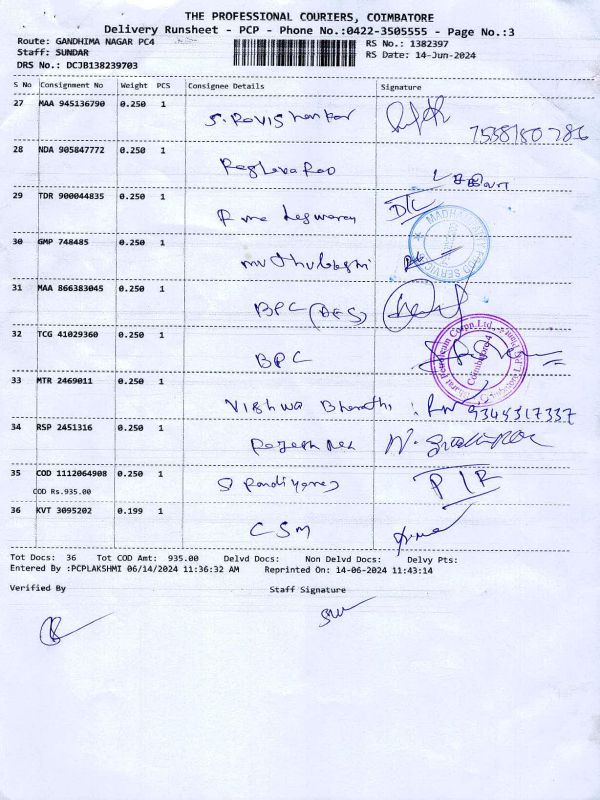 THE PROFESSIONAL COURIERS, COIMBATORE
Delivery Runsheet - PCP - Phone No.:0422-3505555 - Page No.:3
Route: GANDHIMA NAGAR PC4
RS No.: 1382397
Staff: SUNDAR
RS Date: 14-Jun-2024
DRS No.: DCJB138239703
S No Consignment No Weight PCS Consignee Details Signature
27 MAA 945136790 0.250 1 S. Ravishankar
7558180786
28 NDA 905847772 0.250 1 Raghava Rao
29 TDR 900044835 0.250 1
30 GMP 748485 0.250 1 muthulaxmi
31 MAA 866383045 0.250 1 BPC
32 TCG 41029360 0.250 1 BPC
33 MTR 2469011 0.250 1 Vishwa Bharathi : 9345317337
34 RSP 2451316 0.250 1
35 COD 1112064908 0.250 1 S Pandiyaraj
COD Rs.935.00
36 KVT 3095202 0.199 1 CSM
Tot Docs: 36 Tot COD Amt: 935.00 Delvd Docs: Non Delvd Docs: Delvy Pts:
Entered By :PCPLAKSHMI 06/14/2024 11:36:32 AM Reprinted On: 14-06-2024 11:43:14
Verified By Staff Signature